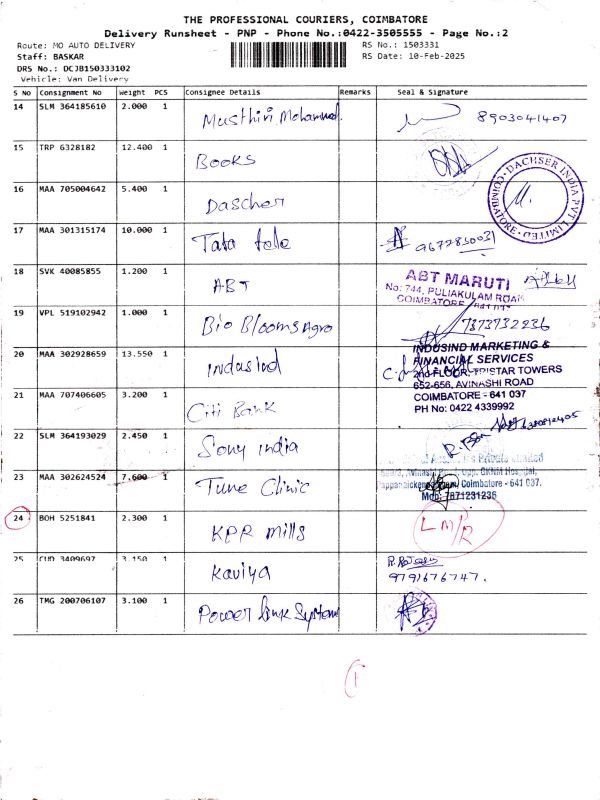 THE PROFESSIONAL COURIERS, COIMBATORE
Delivery Runsheet - PNP - Phone No.:0422-3505555 - Page No.:2
Route: MO AUTO DELIVERY RS No.: 1503331
Staff: BASKAR RS Date: 10-Feb-2025
DRS No.: DCJB150333102
Vehicle: Van Delivery
S No Consignment No Weight PCS Consignee Details Remarks Seal & Signature
14 SLM 364185610 2.000 1 Musthiri Mohammed 8903041407
15 TRP 6328182 12.400 1 Books
16 MAA 705004642 5.400 1 Dascher
DACHSER INDIA PVT LIMITED COIMBATORE
17 MAA 301315174 10.000 1 Tata tele 9677850031
18 SVK 40085855 1.200 1 ABT
ABT MARUTI
No: 744, PULIAKULAM ROAD
COIMBATORE - 641
19 VPL 519102942 1.000 1 Bio Blooms Agro 7373732236
20 MAA 302928659 13.550 1 indusind
INDUSIND MARKETING &
FINANCIAL SERVICES
2nd FLOOR, TRISTAR TOWERS
652-656, AVINASHI ROAD
COIMBATORE - 641 037
PH No: 0422 4339992
21 MAA 707406605 3.200 1 Citi Bank
22 SLM 364193029 2.450 1 Sony india
Private Limited
Opp. GKNM Hospital,
Coimbatore - 641 037.
Mob: 7871231236
23 MAA 302624524 7.600 1 Tune Clinic
24 BOH 5251841 2.300 1 KPR mills LM/R
25 CUD 3409697 3.150 1 Kaviya 9791676747.
26 TMG 200706107 3.100 1 Power link System
1